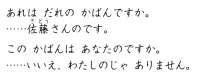 あれは だれの かばんですか。
……佐藤さんのです。
この かばんは あなたのですか。
……いいえ、わたしのじゃ ありません。